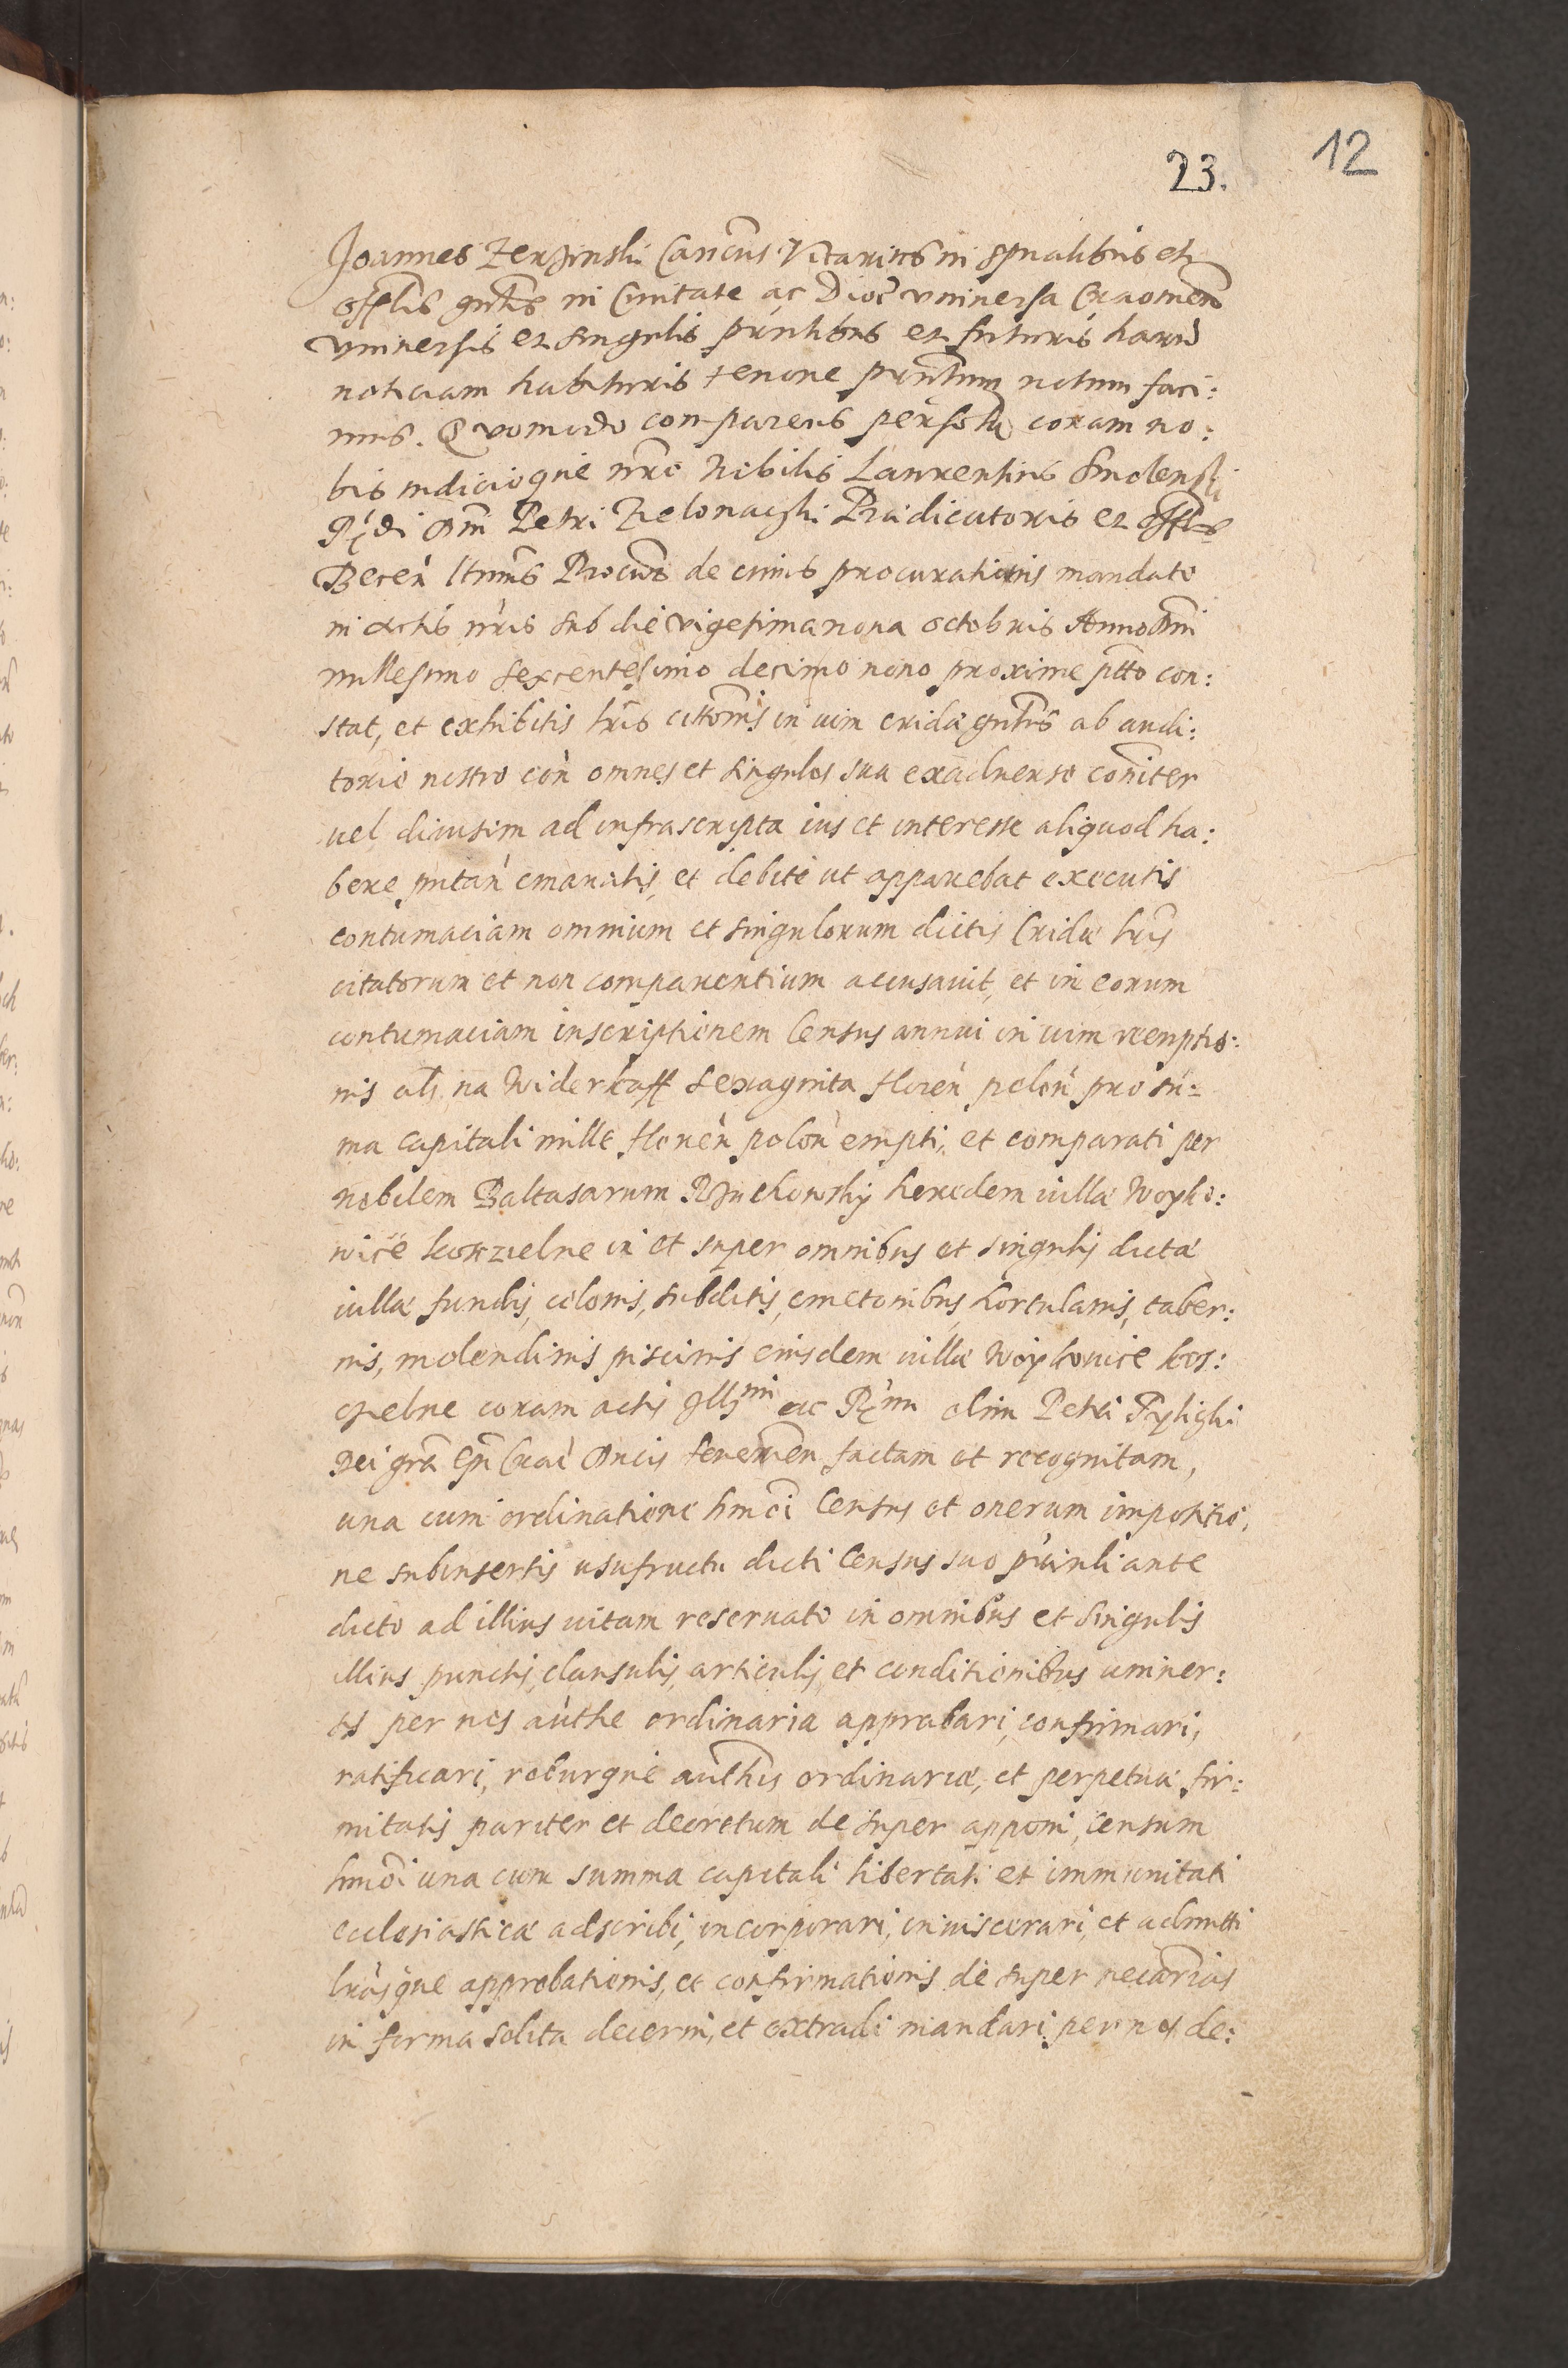 12
23.
Joannes Zerzinski Cancus Vicarius in spualibus et
offlis gnlis in Ciuitate ac Dioc vniuersa Cracouien
vniuersis et singulis pntibus et futuris harũ
noticiam habituris tenore pntium notum faci:
mus. Quomodo comparens personlr coram no:
bis iudicioque nro Nobilis Laurentius Smolenski
Rndi Dni Petri Zielonaczki Prædicatoris et offlis
Becen ltimus Procur de cuius procurationis mandato
in actis nris sub die vigesima nona octobris Anno Dni
millesimo sexcentesimo decimo nono proxime ptto con:
stat, et exhibitis lris cittonis in uim cridæ gnlis ab audi:
torio nostro con omnes et singulos sua exaduerso coniter
uel diuisim ad infrascripta ius et interesse aliquod ha:
bere putan emanatis, et debite ut apparebat executis
contumaciam omnium et singulorum dictis Cridæ lris
citatorum et non comparentium accusauit, et in eorum
contumaciam inscriptionem Census annui in uim reemptio:
nis als na Widerkaff sexaginta floren polon pro su:
ma capitali mille floren polon empti, et comparati per
nobilem Baltasarum Rzuchowsky heredem uillæ Woyko:
wice koszielne in et super omnibus et singulis dictæ
uillæ fundis, colonis, subditis, cmetonibus, hortulanis, taber:
nis, molendinis piscinis eiusdem uillæ Woykowice kos:
czelne coram actis Illmi ac Rmi olim Petri Tylighi
Dei gra Epi Crac Ducis Seuerien factam et recognitam,
una cum ordinatione hmoi Census et onerum impositio,
ne subinsertis usufructu dicti Census suo prinli ante
dicto ad illius uitam reseruato in omnibus et singulis
illius punctis, clausulis, articulis, et conditionibus uniuer:
sis per nos authe ordinaria approbari, confirmari,
ratificari, roburque authis ordinariæ, et perpetuæ fir:
mitatis pariter et decretum de super apponi, Censum
hmoi una cum summa capitali libertati et immunitati
ecclesiasticæ adscribi, incorporari, inuiscerari, et admitti
lrasque approbationis, et confirmationis de super necarias
in forma solita decerni, et extradi mandari per nos de: